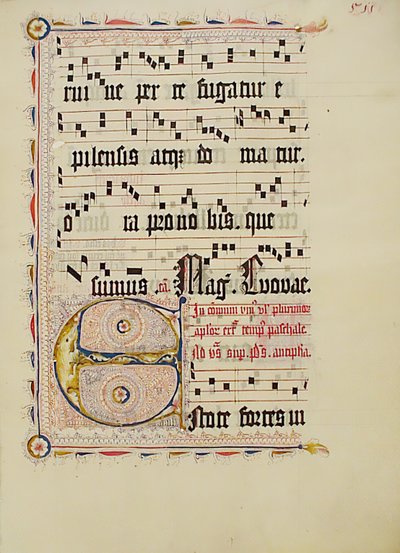 rui ne per te fugatur e
pilensis atqꝫ do matur.
o ra pro no bis. que
sumus .ca. Mag. Evovae.
In coıun vniꝰ vl plurimoꝝ
aplor ext temp paschale.
Ad vs sup. ps. antipha.
Estote fortes in